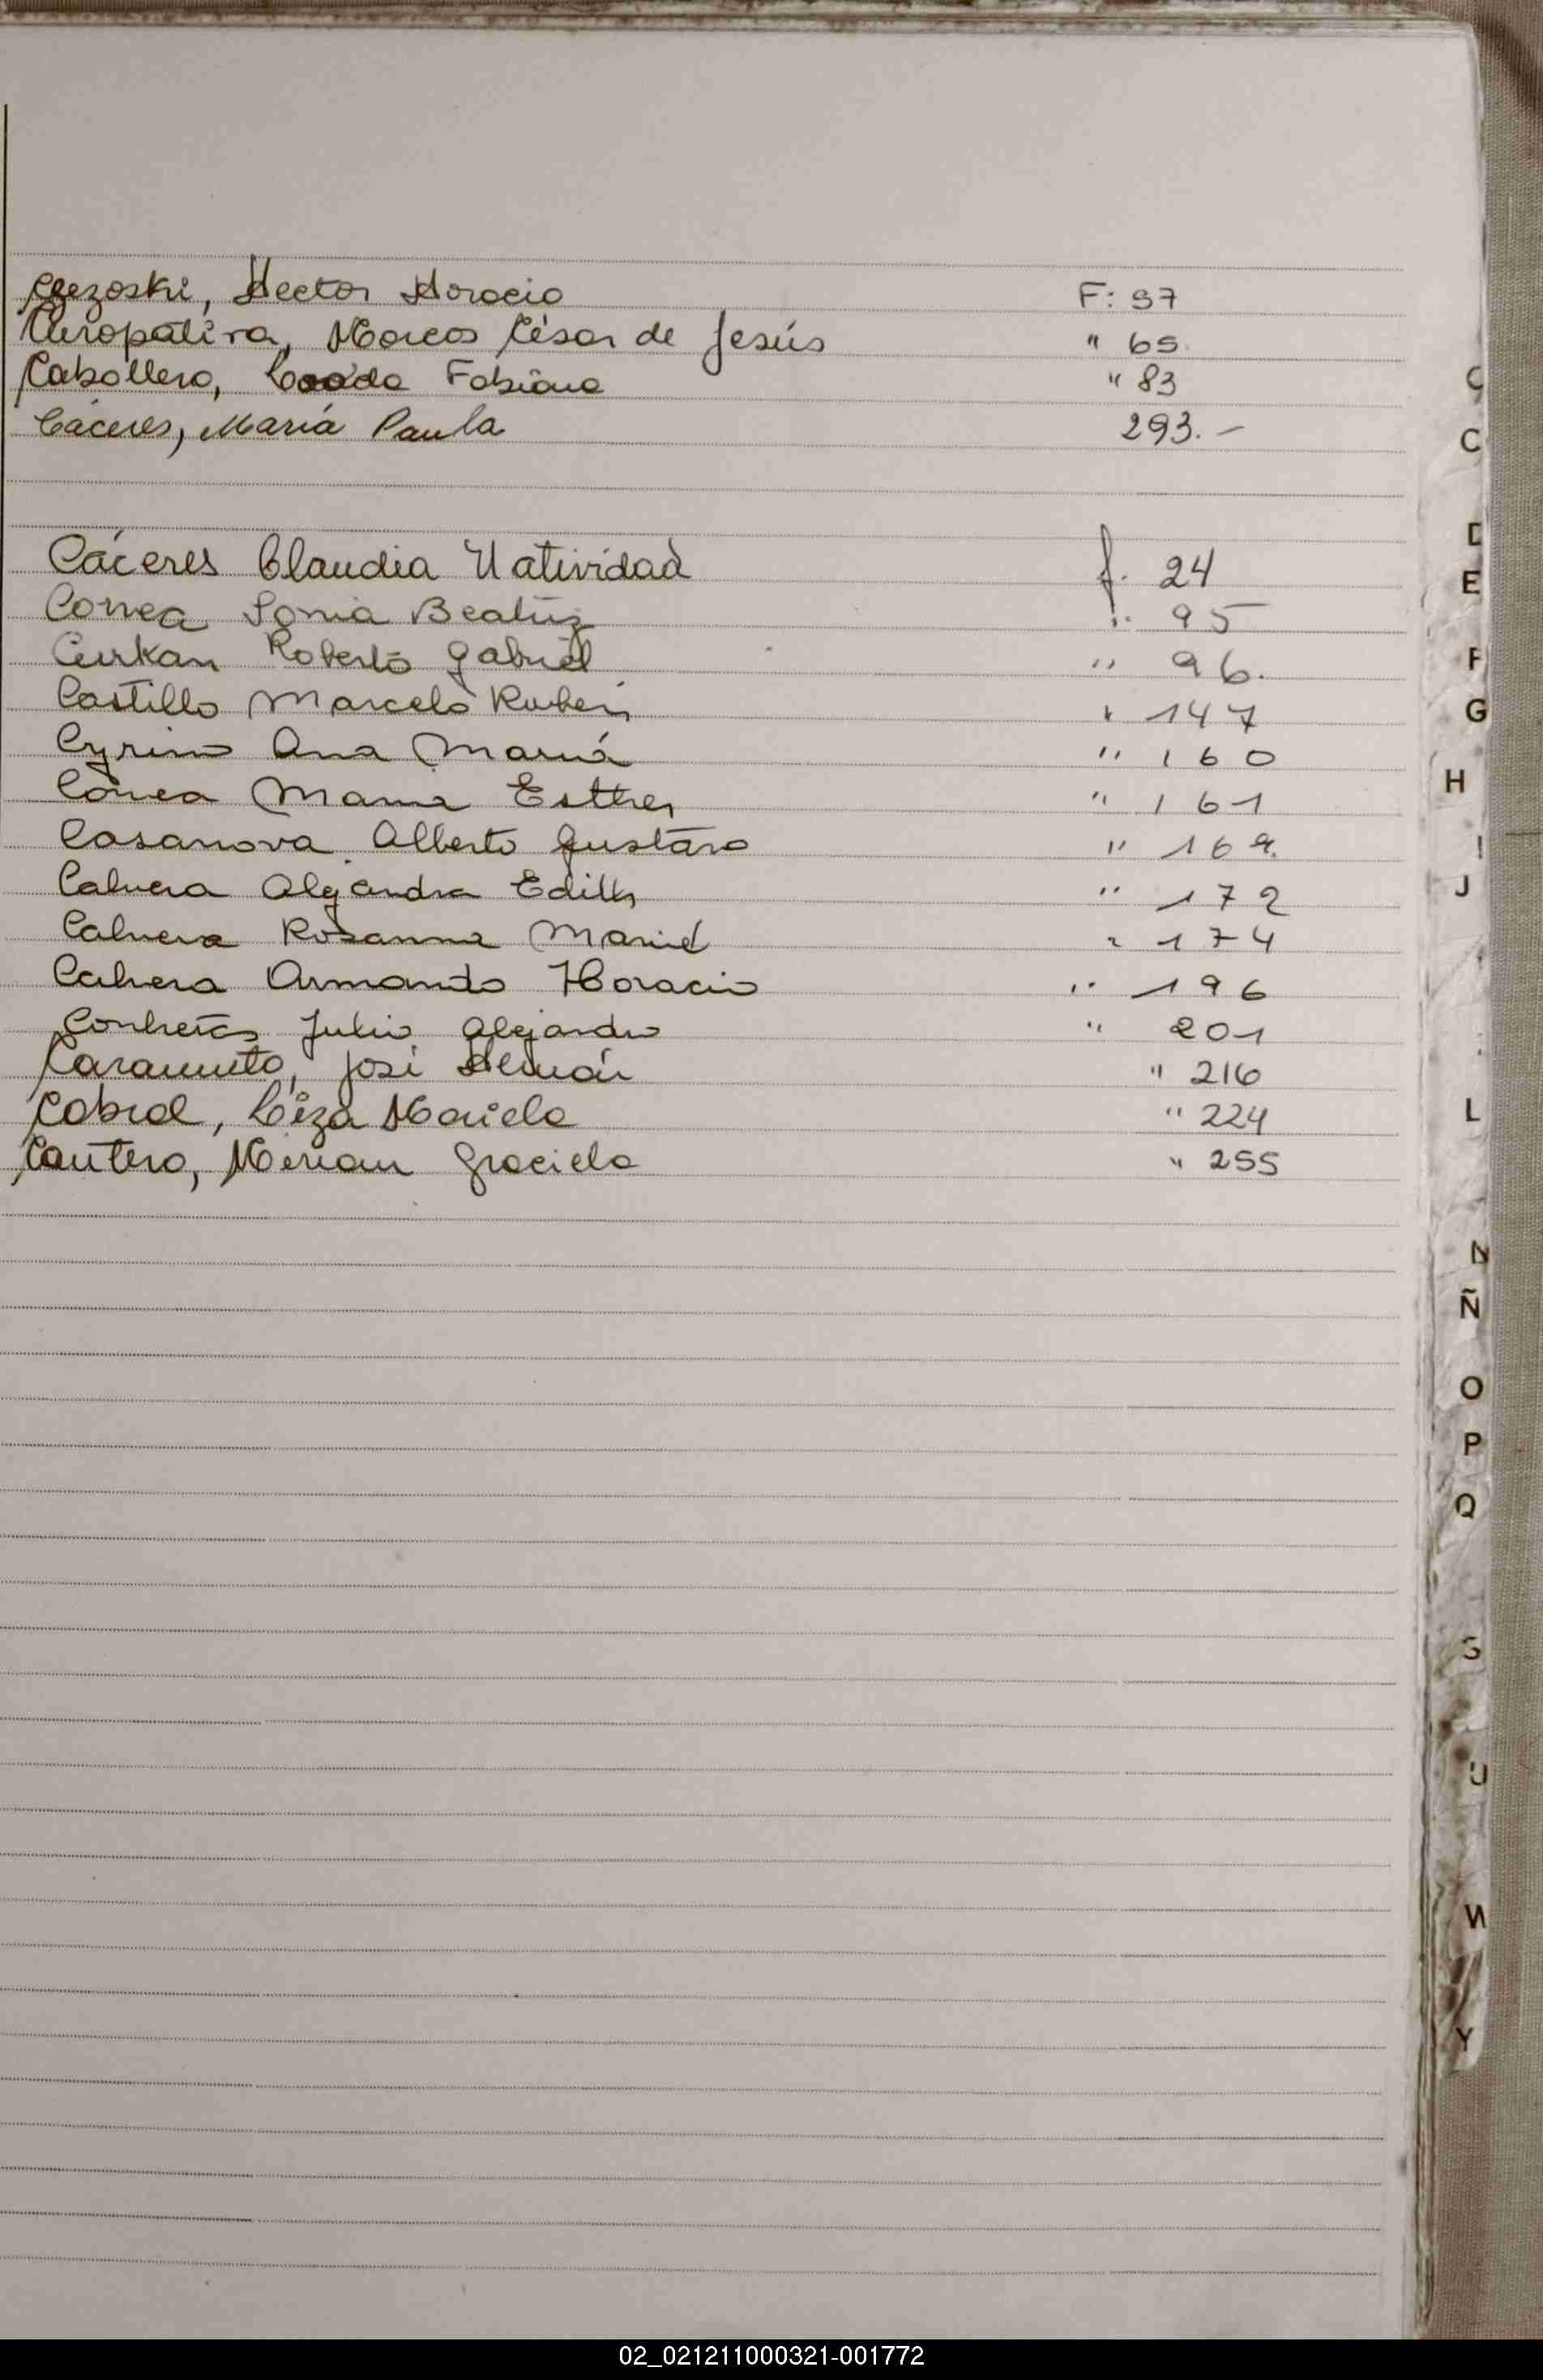 Hector Horacio F: 37
Marcos César de Jesús " 65.
Caballero, Fabiana " 83
Cáceres, María Paula 293.-
Cáceres Claudia Natividad f. 24
Correa Sonia Beatriz " 95
Curkan Roberto Gabriel " 96.
Castillo Marcelo Ruben " 147
Cyrino Ana María " 160
Correa Maria Esther " 161
Casanova Alberto Gustavo " 169.
Cabrera Alejandra Edith " 172
Cabrera Rosanna " 174
Cabrera Armando Horacio " 196
Julio Alejandro " 201
José Hernán " 216
Cabral, Mariela " 224
Cantero, Graciela " 255
C
C
D
E
F
G
H
I
J
L
N
Ñ
O
P
Q
S
U
W
Y
02_021211000321-001772